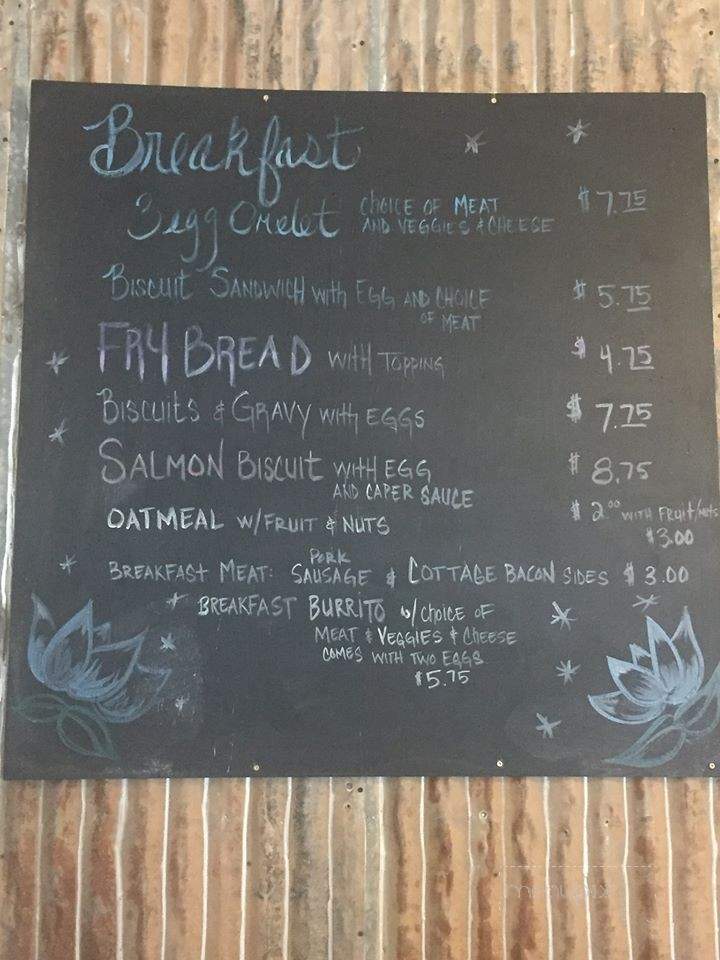 Breakfast
3 egg Omelet CHOICE OF MEAT $7.75
AND VEGGIES & CHEESE
BISCUIT SANDWICH with EGG AND CHOICE $5.75
OF MEAT
FRY BREAD WITH TOPPING $4.75
BISCUITS & GRAVY with EGGS $7.75
SALMON BISCUIT WITH EGG $8.75
AND CAPER SAUCE
OATMEAL W/FRUIT & NUTS $2.00 WITH FRUIT/nuts
$3.00
PORK
BREAKFAST MEAT: SAUSAGE & COTTAGE BACON SIDES $3.00
BREAKFAST BURRITO w/CHOICE OF
MEAT & VEGGIES & CHEESE
COMES WITH TWO EGGS
$5.75